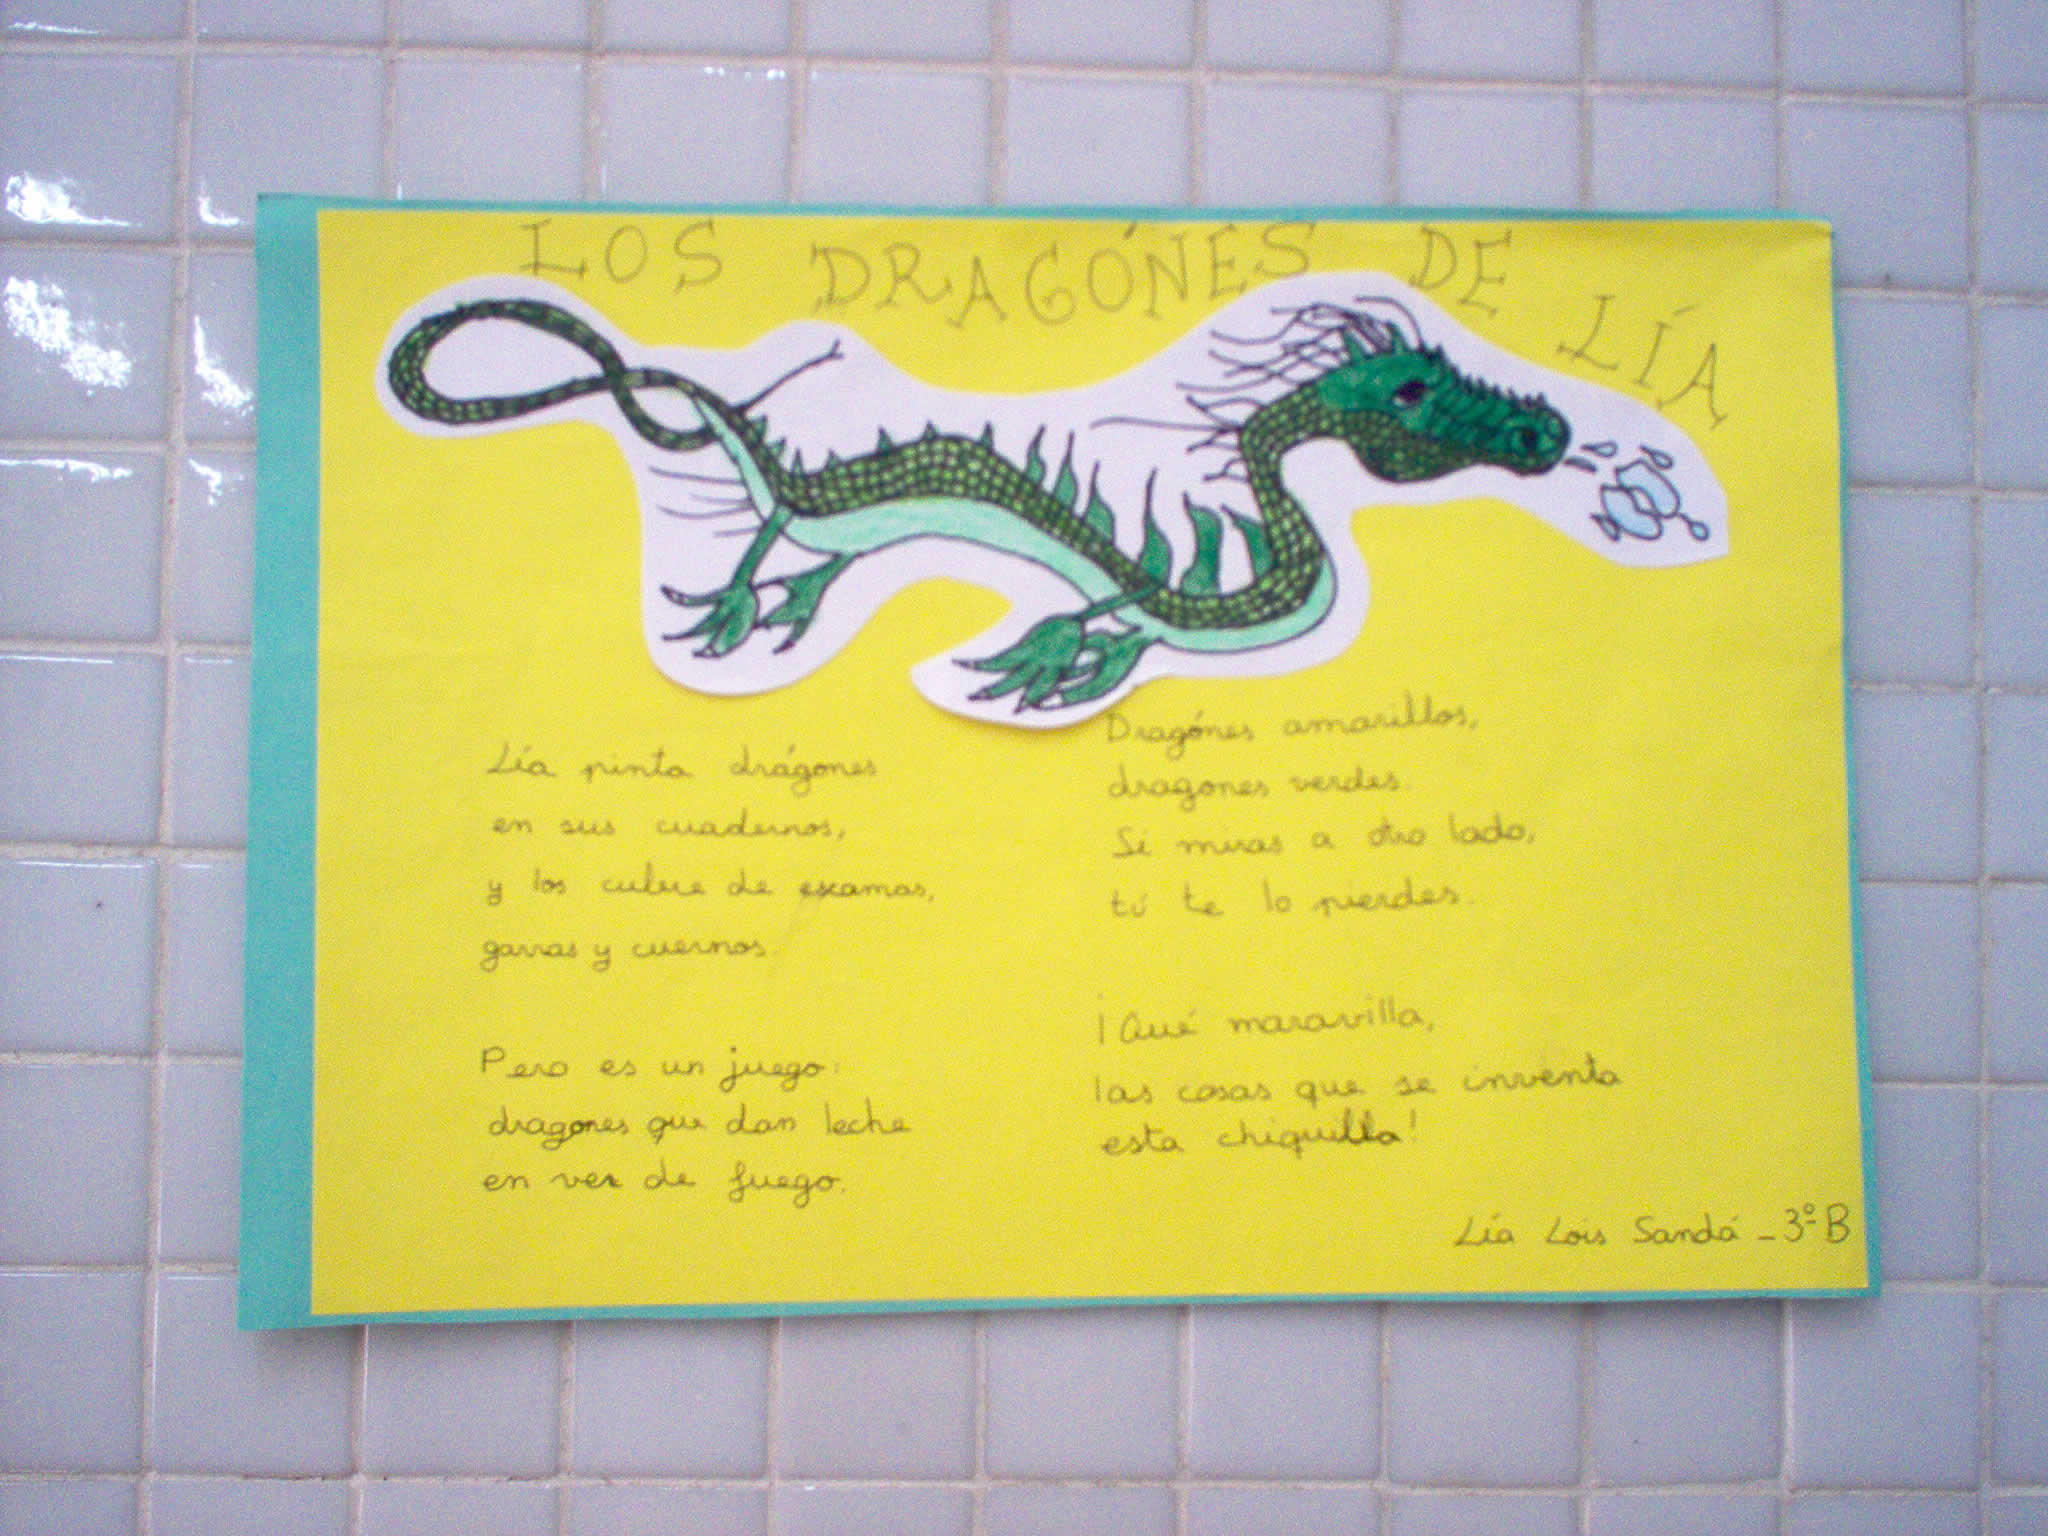 LOS DRAGÓNES DE LÍA
Lía pinta drágones
en sus cuadernos,
y los cubre de escamas,
garras y cuernos.
Pero es un juego:
dragones que dan leche
en vez de fuego.
Dragónes amarillos,
dragones verdes.
Si miras a otro lado,
tú te lo pierdes.
¡Qué maravilla,
las cosas que se inventa
esta chiquilla!
Lía Lois Sandá - 3º B